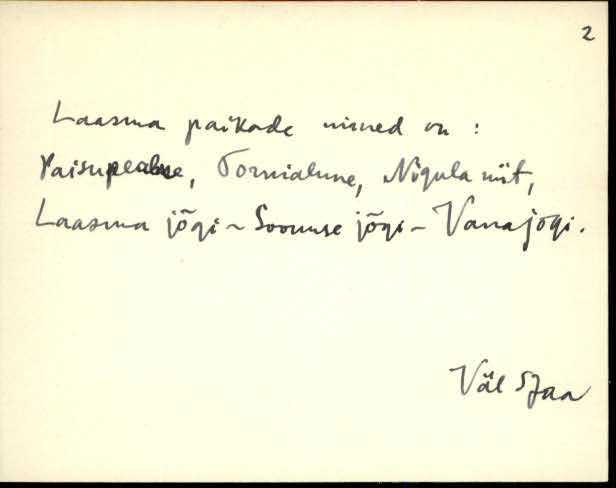 2
Laasma paikade nimed on :
Paisupealne, Tornialune, Nigula niit,
Laasma jõgi ~ Soonuse jõgi ~ Vanajõgi.
Väl SJaa